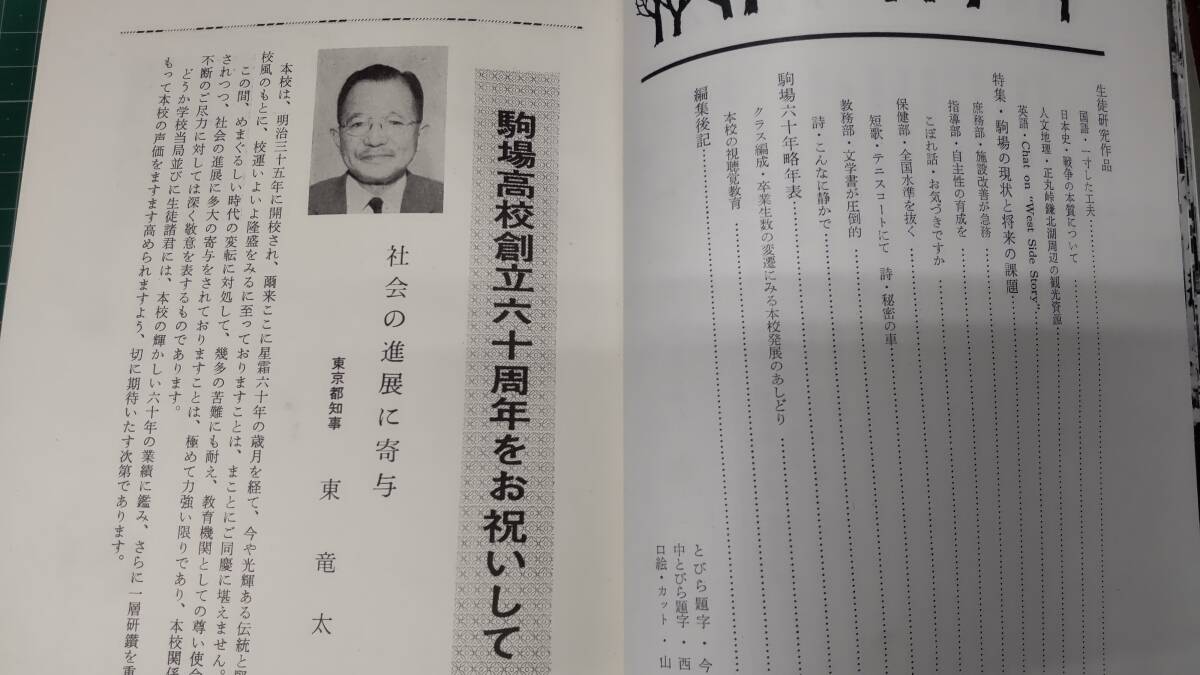 生徒研究作品
国語・一寸した工夫
日本史・戦争の本質について
人文地理・正丸峠鎌北湖周辺の観光資源
英語・Chat on "West Side Story"
特集・駒場の現状と将来の課題
庶務部・施設改善が急務
指導部・自主性の育成を
こぼれ話・お気づきですか
保健部・全国水準を抜く
短歌・テニスコートにて 詩・秘密の車
教務部・文学書が圧倒的
詩・こんなに静かで
駒場六十年略年表
クラス編成・卒業生数の変遷にみる本校発展のあしどり
本校の視聴覚教育
編集後記
とびら題字・今
中とびら題字・西
口絵・カット・山
駒場高校創立六十周年をお祝いして
社会の進展に寄与
東京都知事 東 竜 太
本校は、明治三十五年に開校され、爾来ここに星霜六十年の歳月を経て、今や光輝ある伝統と
校風のもとに、校運いよいよ隆盛をみるに至っておりますことは、まことにご同慶に堪えません。
この間、めまぐるしい時代の変転に対処して、幾多の苦難にも耐え、教育機関としての尊い使命
されつつ、社会の進展に多大の寄与をされておりますことは、極めて力強い限りであり、本校関係
不断のご尽力に対しては深く敬意を表するものであります。
どうか学校当局並びに生徒諸君には、本校の輝かしい六十年の業績に鑑み、さらに一層研鑽を重
もって本校の声価をますます高められますよう、切に期待いたす次第であります。